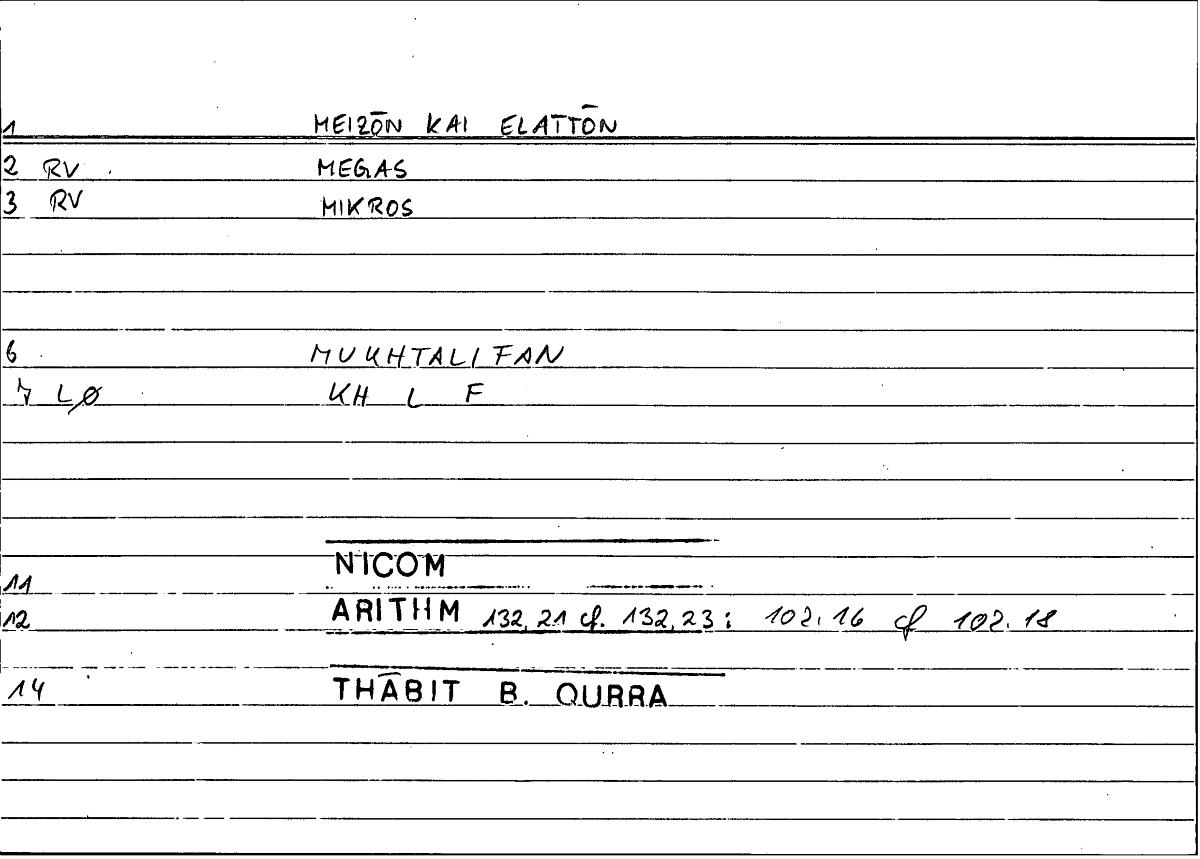 1 MEIZŌN KAI ELATTŌN
2 RV MEGAS
3 RV MIKROS
6 MUKHTALIFAN
7 LØ KH L F
11 NICOM
12 ARITHM 132,21 cf. 132,23 : 102.16 cf 102.18
14 THĀBIT B. QURRA